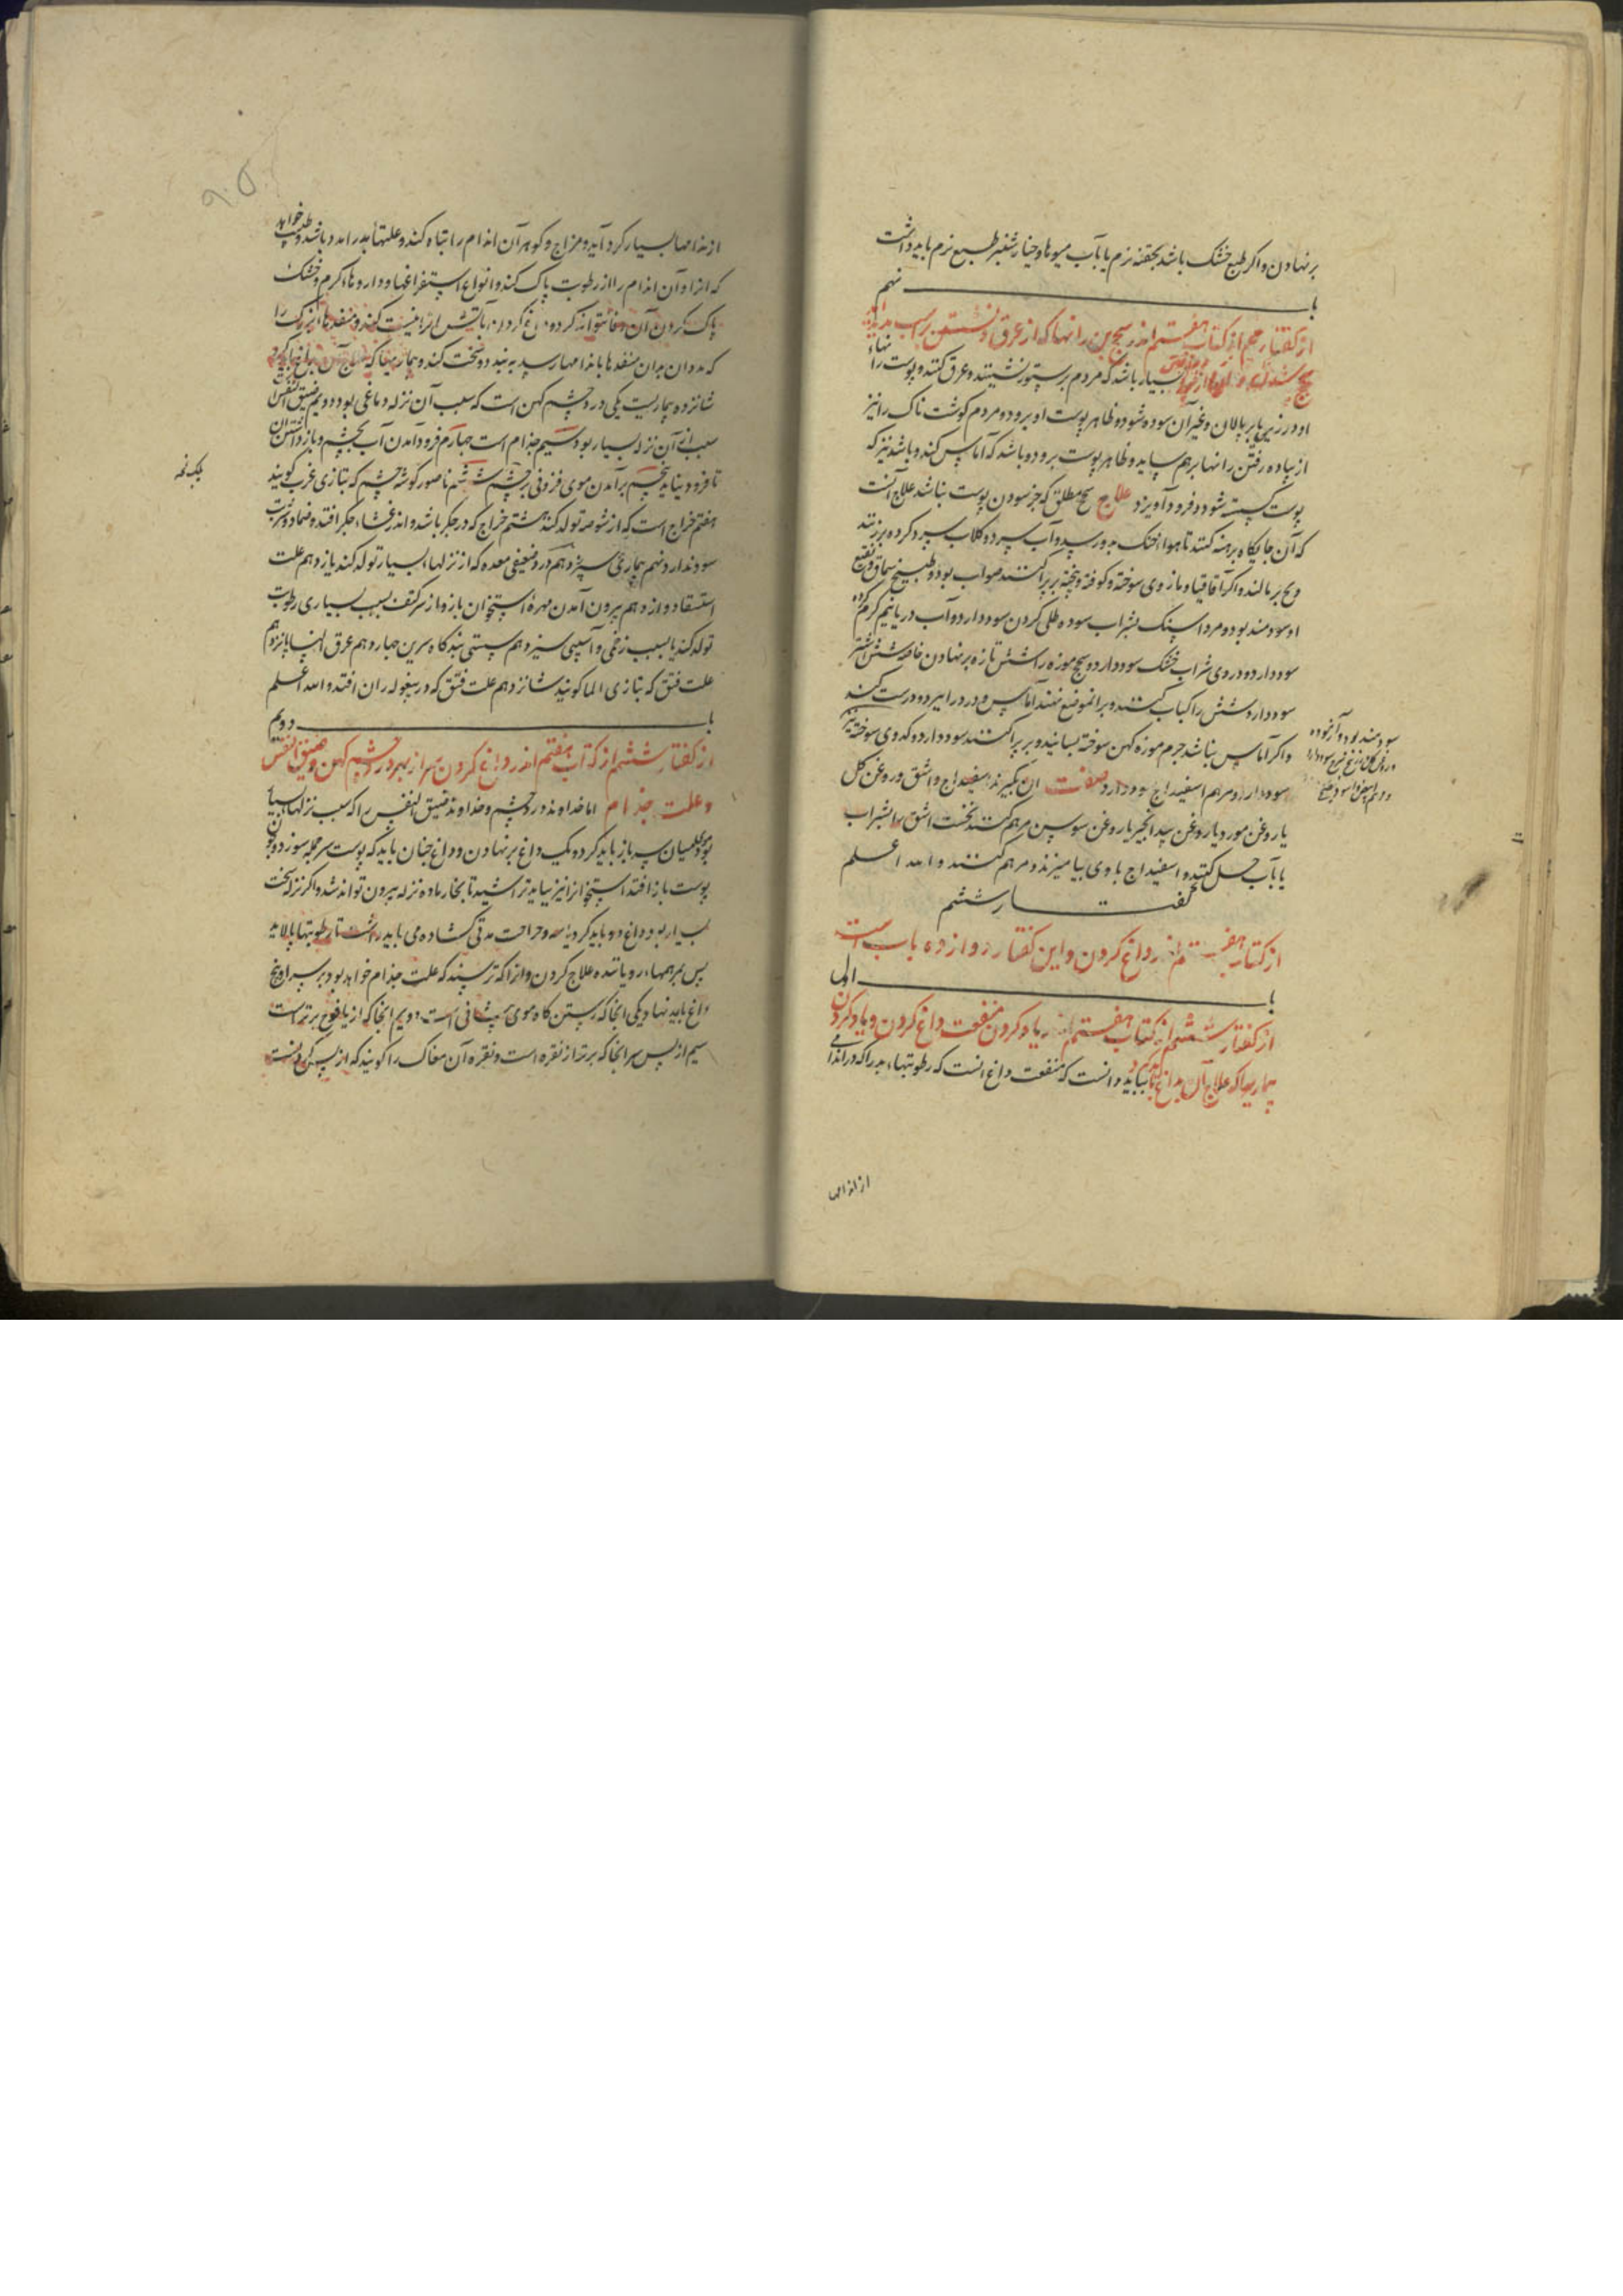 برنهادن و اکر طبع خشک باشد بحقنه نرم یا بآب میوها و خیار شنبر طبع نرم باید داشت
باب نهم
از کفتار پنجم از کتاب هفتم اندر سحج بن رانها که از عرق و نشستن بر اسب پدید آید
بسیار باشد که مردم بر ستور نشینند و عرق کنند و پوست رانهاء
او در زین یا بر پالان و غیر آن سوده شود و ظاهر پوست او برود و مردم کوشت ناک را نیز
از پیاده رفتن رانها برهم ساید و ظاهر پوست برود و باشد که آماس کند و باشد نیز که
پوست کسسته شود و فرود آویزد علاج سحج مطلق که جز سودن پوست نباشد علاج آنست
که آن جایکاه برهنه کنند تا هواء خنک بدو رسد و آب سرد و کلاب سرد کرده برزنند
و یخ بر مالند و اکر اقاقیا و مازوی سوخته و کوفته و پخته بر پراکنند صواب بود و طبیخ سماق و نقیع
او سودمند بود و مرداسنک بشراب سوده طلی کردن سود دارد و آب دریا نیم کرم کرده
سود دارد و دردی شراب خشک سود دارد و سحج موزه را شش تازه برنهادن خاصه شش اشتر
سود دارد و شش را کباب کنند و بر آنموضع نهند آماس و درد را ببرد و درست کند
و اکر آماس نباشد چرم موزه کهن سوخته بسایند و بر پراکنند سود دارد و کدوی سوخته نیز
سود دارد و مرهم اسفیداج سود دارد صفت آن بکیرند اسفیداج و اشق و روغن کل
یا روغن مورد یا روغن بید انجیر یا روغن سوسن مرهم کنند نخست اشق را بشراب
یا بآب حل کنند و اسفیداج با وی بیامیزند و مرهم کنند و الله اعلم
کفتار ششم
از کتاب هفتم اندر داغ کردن و این کفتار دوازده باب است
باب اول
از کفتار ششم از کتاب هفتم اندر یاد کردن منفعت داغ کردن و یاد کردن
بیماریها که علاج آن بداغ باید کرد بباید دانست که منفعت داغ آنست که رطوبتهاء بد را که در اندامی
سودمند بود و
از اندامها
از اندامها بسیار کرد آید و مزاج و کوهر آن اندام را تباه کند و علتها بد را مدد باشد و طبیب خواهد
که از او آن اندام را از رطوبت پاک کند و انواع استفراغها و داروهاء کرم و خشک
پاک کردن آن وفا نتواند کرد و داغ کردن بآتش آنرا نیست کند و منفذهاء بزرک را
که مدد آن بدان منفذها باندامها رسد به بندد و سخت کند و بیماریها که علاج آن بداغ باید کرد
شانزده بیماریست یکی درد چشم کهن است که سبب آن نزله دماغی بود دویم ضیق النفس
سبب آن نزله بسیار بود سیم جذام است چهارم فرود آمدن آب بچشم و باز داشتن آن
تا فرود نیاید پنجم برآمدن موی فزونی بر چشم ششم ناصور کوشه چشم که بتازی غرب کویند
هفتم خراج است که از شوصه تولد کند هشتم خراج که در جکر باشد و اندر غشاء جکر افتد و ضماد و شربت
سود ندارد نهم بیماری سپرز دهم درد و ضعیفی معده که از نزلهاء بسیار تولد کند یازدهم علت
استسقا دوازدهم بیرون آمدن مهره استخوان بازو از سر کتف بسبب بسیاری رطوبت
تولد کند یا بسبب زخمی و آسیبی سیزدهم سستی بندکاه سرین چهاردهم عرق النسا پانزدهم
علت فتق که بتازی الما کویند شانزدهم علت فتق که در بیغوله ران افتد و الله اعلم
باب دویم
از کفتار ششم از کتاب هفتم اندر داغ کردن سر از بهر درد چشم کهن و ضیق النفس
و علت جذام اما خداوند درد چشم و خداوند ضیق النفس را که سبب نزلهاء بسیار
بود موی میان سر باز باید کرد و یک داغ برنهادن و داغ چنان باید که پوست سر جمله بسوزد و چون
پوست باز افتد استخوانرا نیز بباید تراشید تا بخار ماده نزله بیرون تواند شد و اکر نزله سخت
بسیار بود داغ دو باید کرد یا سه و جراحت مدتی کشاده می باید داشت تا رطوبتها بپالاید
پس بمرهمهاء رویاننده علاج کردن و انرا که ترسند که علت جذام خواهد بود بر سر او پنج
داغ باید نهاد یکی آنجا که رستن کاه موی پیشانی است دویم آنجا که از یافوخ برتر است
سیم از پس سر آنجا که برتر از نقره است و نقره آن مغاک را کویند که از پس